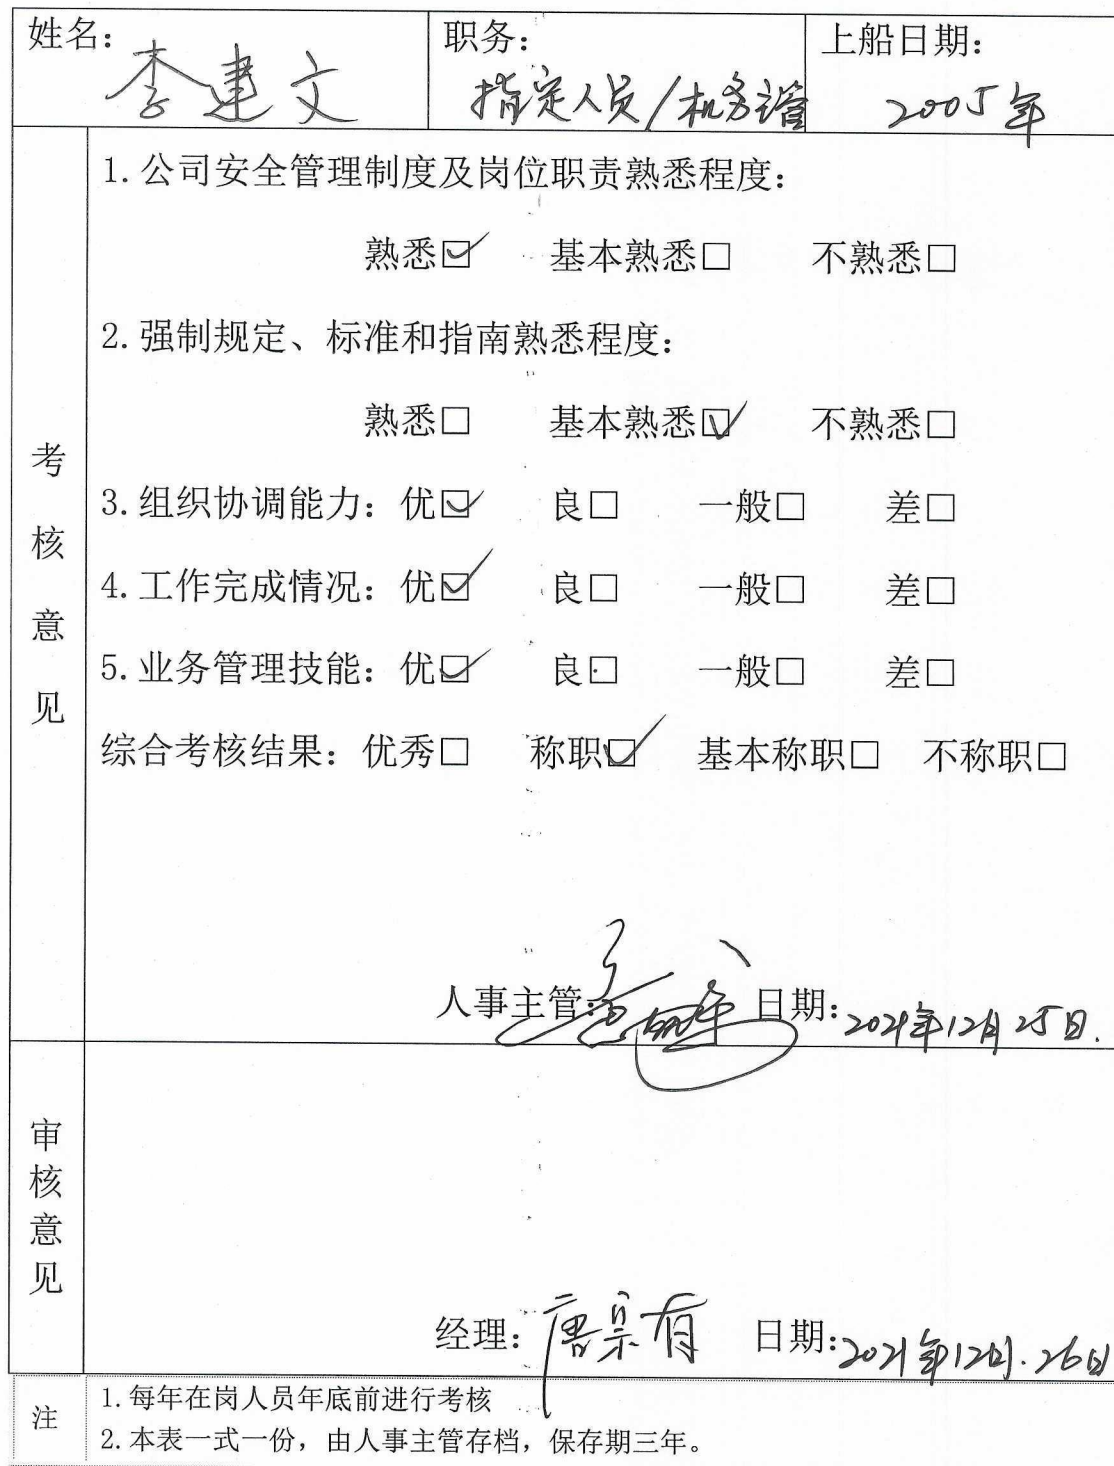 姓名：李建文 职务：指定人员/机务主管 上船日期：2005年
考核意见
1.公司安全管理制度及岗位职责熟悉程度：
熟悉☑ 基本熟悉□ 不熟悉□
2.强制规定、标准和指南熟悉程度：
熟悉□ 基本熟悉☑ 不熟悉□
3.组织协调能力：优☑ 良□ 一般□ 差□
4.工作完成情况：优☑ 良□ 一般□ 差□
5.业务管理技能：优☑ 良□ 一般□ 差□
综合考核结果：优秀□ 称职☑ 基本称职□ 不称职□
人事主管： 日期：2021年12月25日.
审核意见
经理：唐宗有 日期：2021年12月.26日
注
1.每年在岗人员年底前进行考核
2.本表一式一份，由人事主管存档，保存期三年。